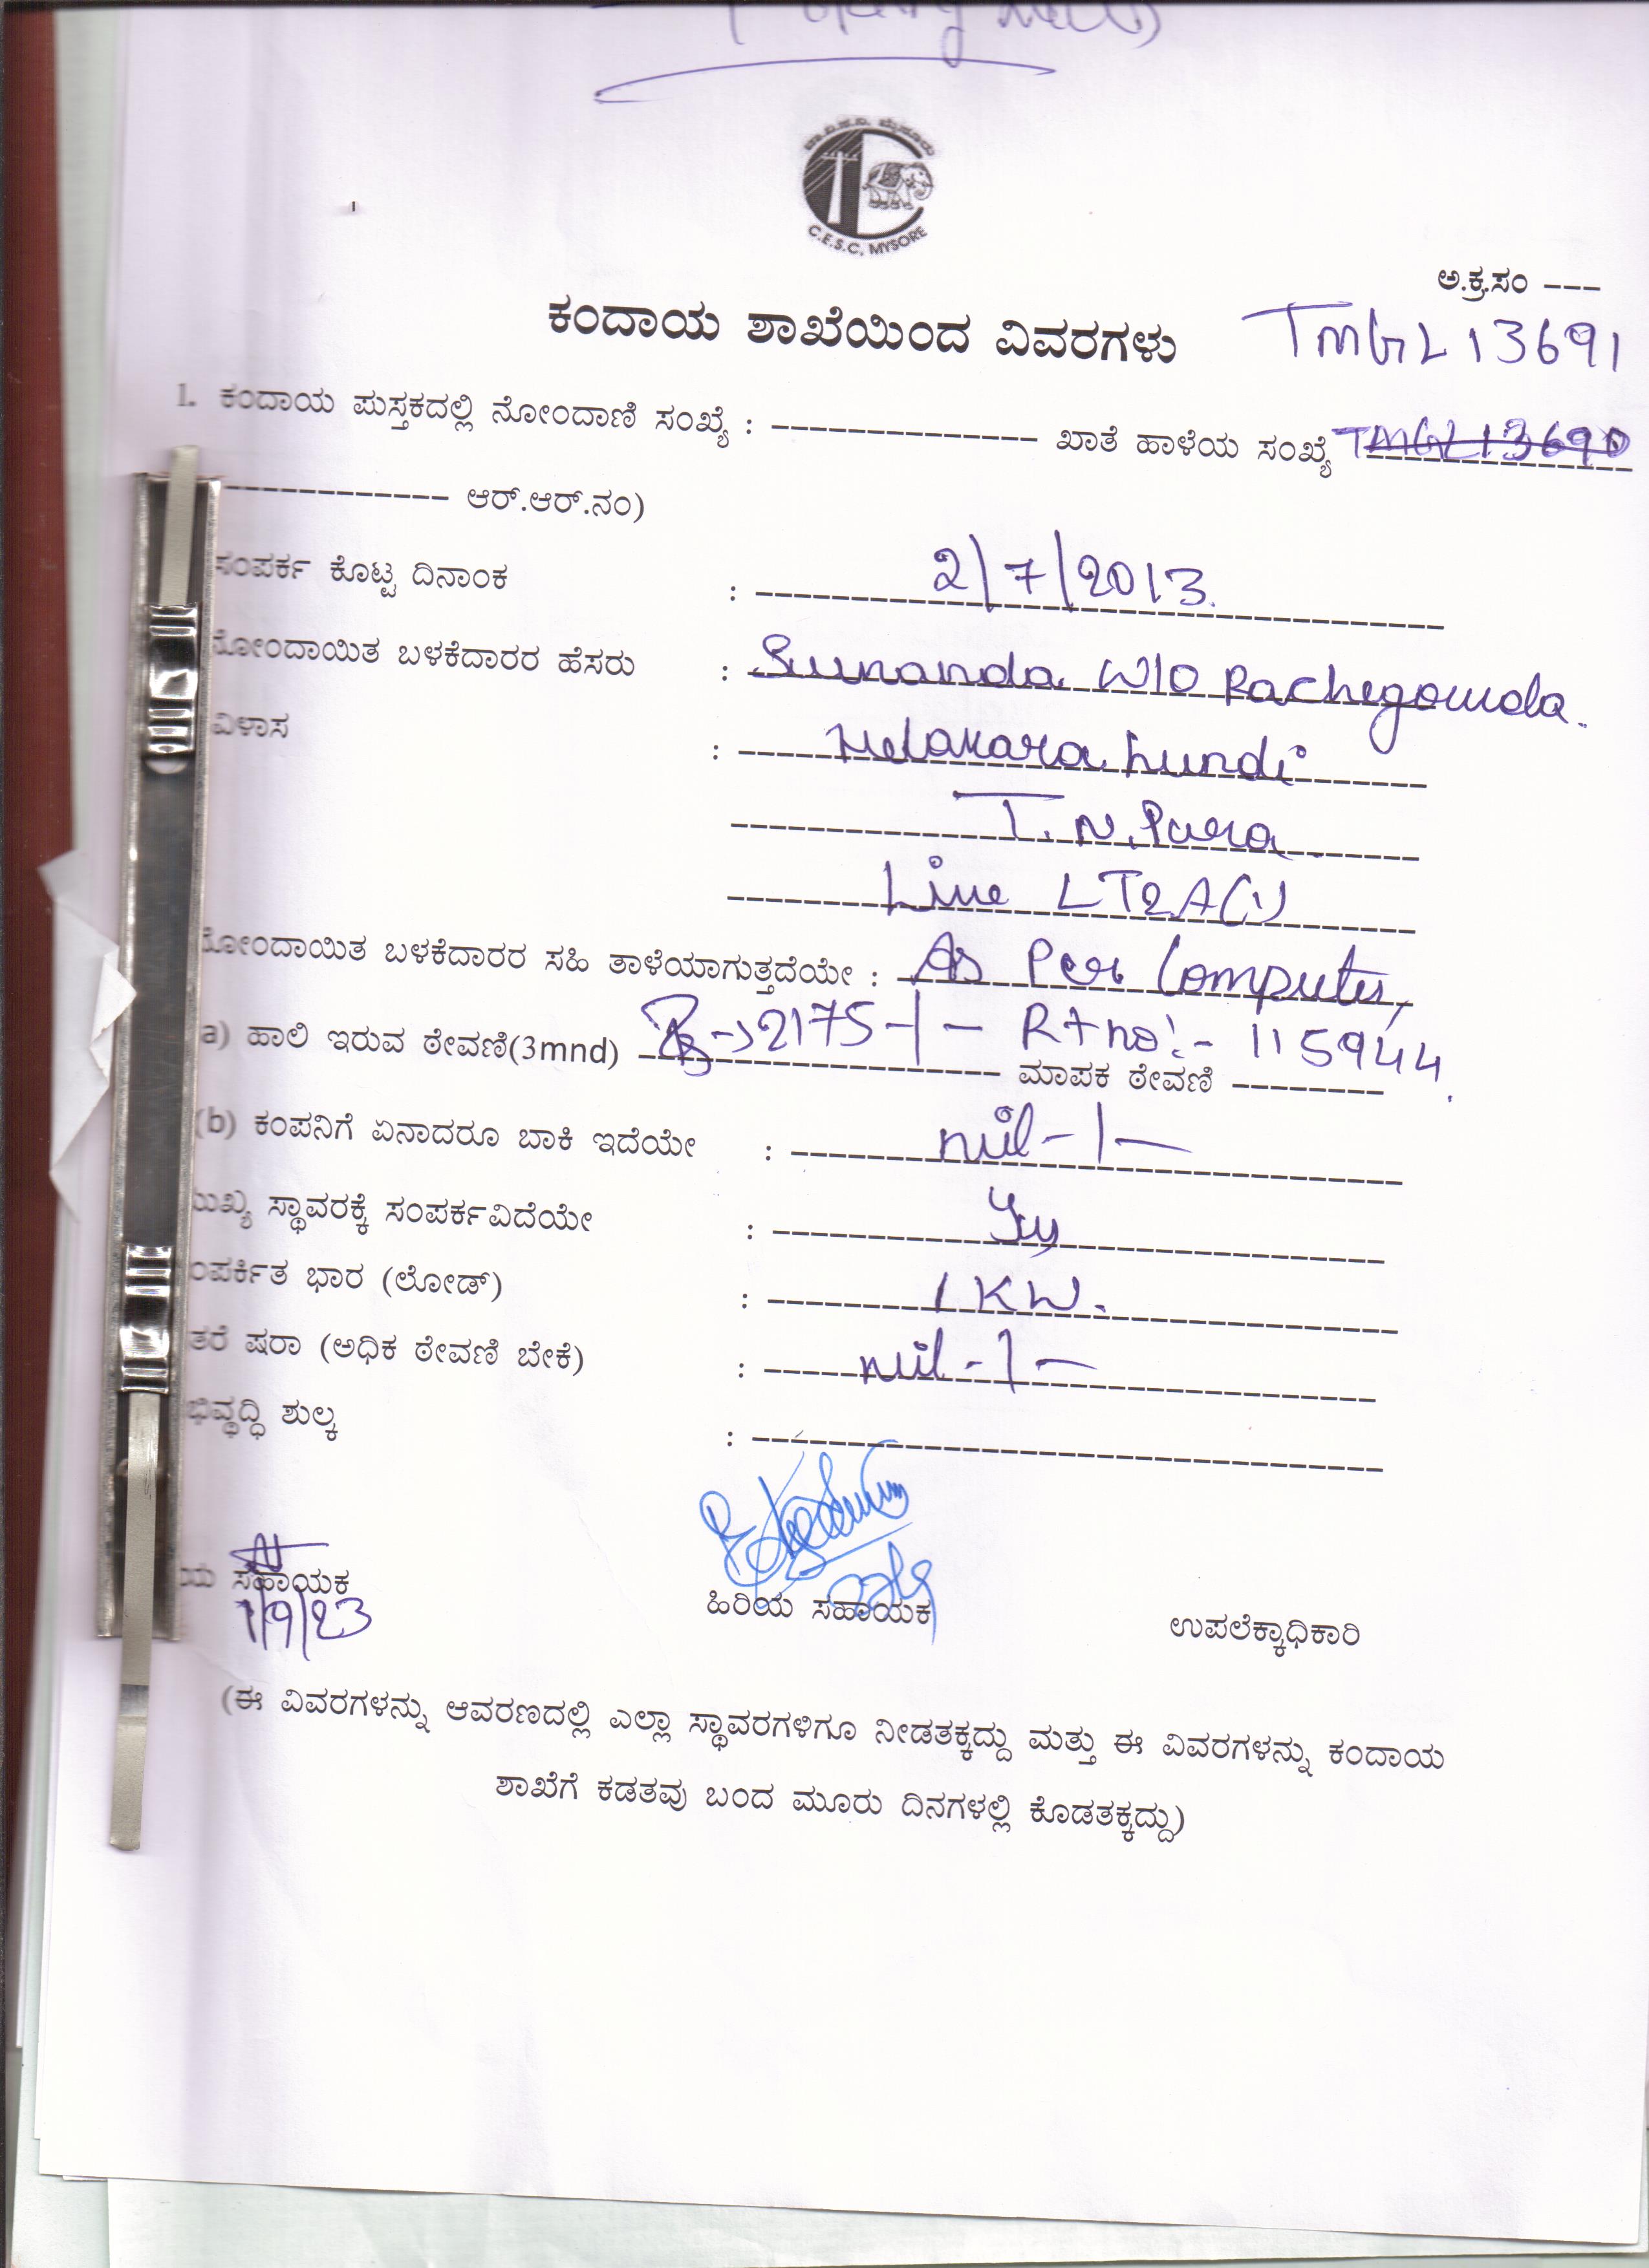 C.E.S.C, MYSORE
ಅ.ಕ್ರ.ಸಂ ---
ಕಂದಾಯ ಶಾಖೆಯಿಂದ ವಿವರಗಳು TMGL 13691
1. ಕಂದಾಯ ಪುಸ್ತಕದಲ್ಲಿ ನೋಂದಾಣಿ ಸಂಖ್ಯೆ : -------------- ಖಾತೆ ಹಾಳೆಯ ಸಂಖ್ಯೆ TMGL13690
------------ ಆರ್.ಆರ್.ನಂ)
ಸಂಪರ್ಕ ಕೊಟ್ಟ ದಿನಾಂಕ : 2/7/2013.
ನೋಂದಾಯಿತ ಬಳಕೆದಾರರ ಹೆಸರು : Sunanda W/O Rachegowda.
ವಿಳಾಸ : hundi
T.N.Pura
Line LT2A(1)
ನೋಂದಾಯಿತ ಬಳಕೆದಾರರ ಸಹಿ ತಾಳೆಯಾಗುತ್ತದೆಯೇ : As Per Computer,
a) ಹಾಲಿ ಇರುವ ಠೇವಣಿ(3mnd) Rs→2175-/- R+no:- 115944.
ಮಾಪಕ ಠೇವಣಿ --------
(b) ಕಂಪನಿಗೆ ಏನಾದರೂ ಬಾಕಿ ಇದೆಯೇ : nil-/-
ಮುಖ್ಯ ಸ್ಥಾವರಕ್ಕೆ ಸಂಪರ್ಕವಿದೆಯೇ :
ಂಪರ್ಕಿತ ಭಾರ (ಲೋಡ್) : 1KW.
ತರೆ ಷರಾ (ಅಧಿಕ ಠೇವಣಿ ಬೇಕೆ) : nil-/-
ಭಿವೃದ್ಧಿ ಶುಲ್ಕ :
ಯ ಸಹಾಯಕ ಹಿರಿಯ ಸಹಾಯಕ ಉಪಲೆಕ್ಕಾಧಿಕಾರಿ
1/9/23
(ಈ ವಿವರಗಳನ್ನು ಆವರಣದಲ್ಲಿ ಎಲ್ಲಾ ಸ್ಥಾವರಗಳಿಗೂ ನೀಡತಕ್ಕದ್ದು ಮತ್ತು ಈ ವಿವರಗಳನ್ನು ಕಂದಾಯ
ಶಾಖೆಗೆ ಕಡತವು ಬಂದ ಮೂರು ದಿನಗಳಲ್ಲಿ ಕೊಡತಕ್ಕದ್ದು)